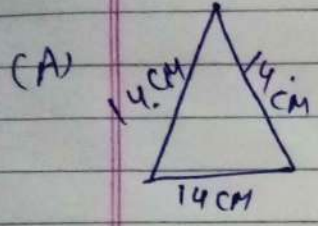 (A)
14. CM
14. CM
14 CM